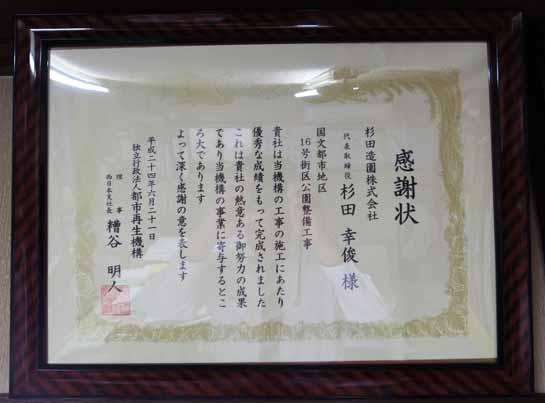 感謝状
杉田造園株式会社
代表取締役 杉田 幸俊 様
国文都市地区
16号街区公園整備工事
貴社は当機構の工事の施工にあたり
優秀な成績をもって完成されました
これは貴社の熱意ある御努力の成果
であり当機構の事業に寄与するとこ
ろ大であります
よって深く感謝の意を表します
平成二十四年六月二十一日
独立行政法人都市再生機構
理事
西日本支社長 糟谷 明人